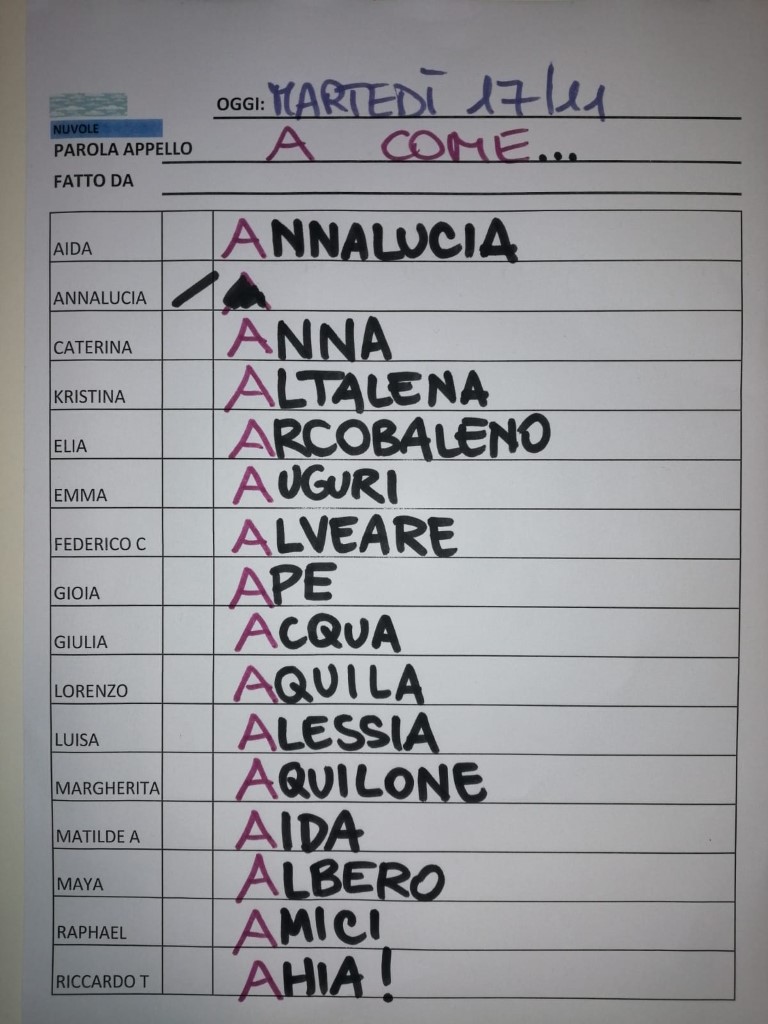 OGGI: MARTEDÌ 17/11
NUVOLE
PAROLA APPELLO A COME...
FATTO DA
AIDA ANNALUCIA
ANNALUCIA A
CATERINA ANNA
KRISTINA ALTALENA
ELIA ARCOBALENO
EMMA AUGURI
FEDERICO C ALVEARE
GIOIA APE
GIULIA ACQUA
LORENZO AQUILA
LUISA ALESSIA
MARGHERITA AQUILONE
MATILDE A AIDA
MAYA ALBERO
RAPHAEL AMICI
RICCARDO T AHIA!